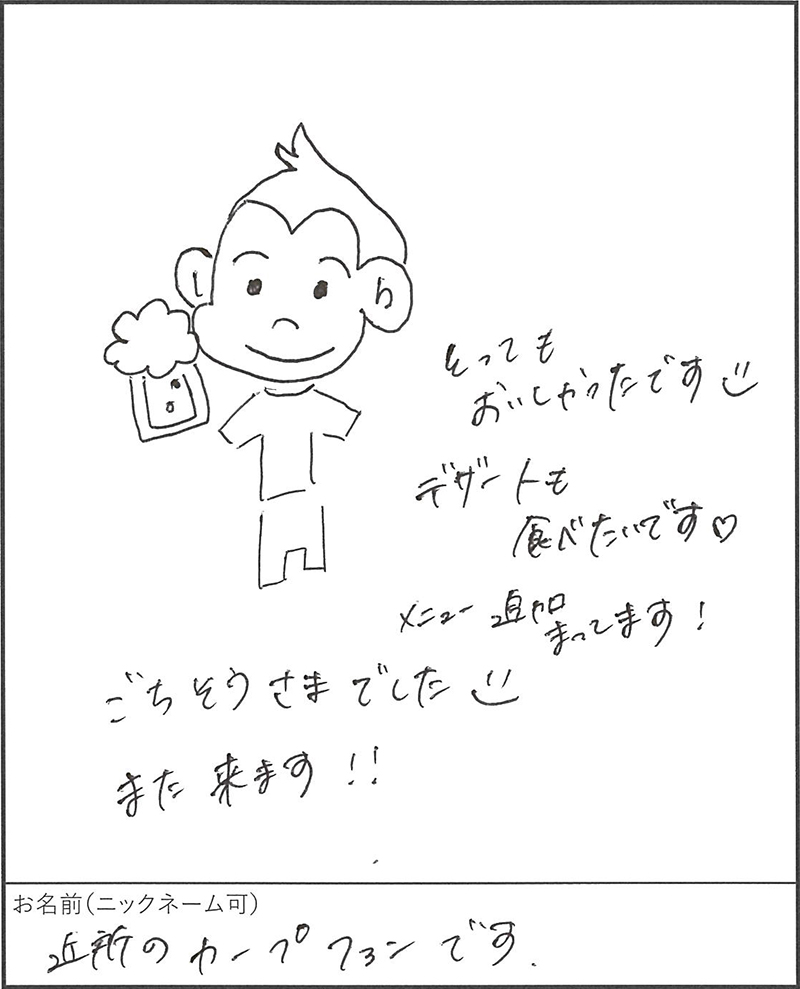 とっても
おいしかったです
デザートも
食べたいです♡
メニュー追加
まってます!
ごちそうさまでした
また来ます!!
お名前(ニックネーム可)
近所のカープファンです.